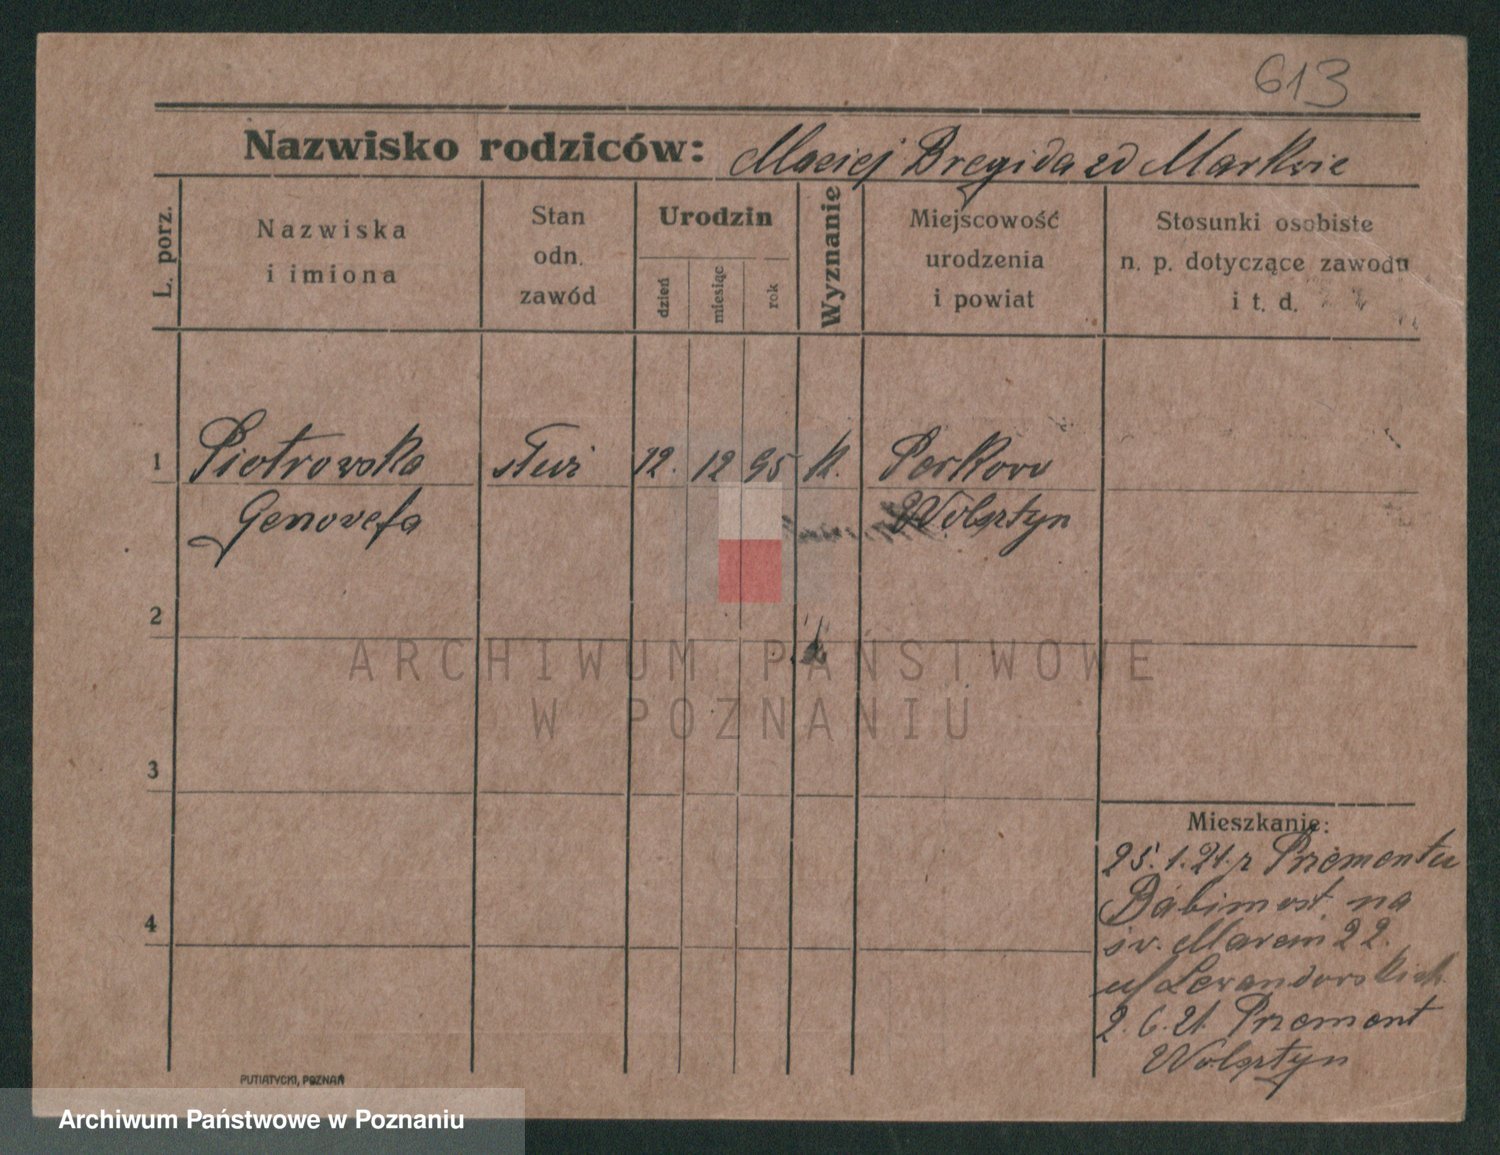 613
Nazwisko rodziców: Maciej Bregida zd Markwie
L. porz.
Nazwiska
i imiona
Stan
odn.
zawód
Urodzin
dzień
miesiąc
rok
Wyznanie
Miejscowość
urodzenia
i powiat
Stosunki osobiste
n. p. dotyczące zawodu
i t. d.
1 Piotrowska 12. 12 95 k.
Genovefa Wolsztyn
2
3
4
Mieszkanie:
25.1.21. z Priementu
Babimost na
św. Marcin 22.
u/ Lewandowskich
2.6.21. Priement
Wolsztyn
PUTIATYCKI, POZNAŃ
ARCHIWUM PAŃSTWOWE
W POZNANIU
Archiwum Państwowe w Poznaniu